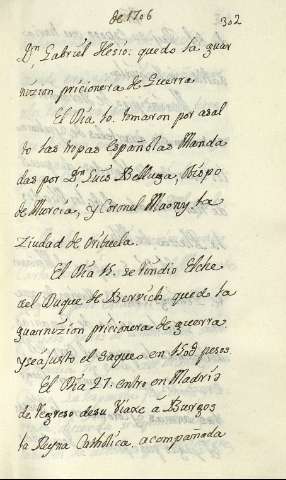 de 1706
302
Dn. Gabriel Hesio: quedo la guar
nizion pricionera de Guerra
El Dia 10. tomaron por asal
to las tropas Españolas Manda
das por Dn. Luis Belluga, Obispo
de Murcia, y Coronel Maony. la
Ziudad de Oribuela.
El Dia 15. se rindio Elche
al Duque de Bervich, quedo la
guarnizion pricionera de guerra
y se ajusto el saqueo en 150@ pesos.
El Dia 27. entro en Madrid
de regreso de su viaxe à Burgos
la Reyna Catholica, acompañada